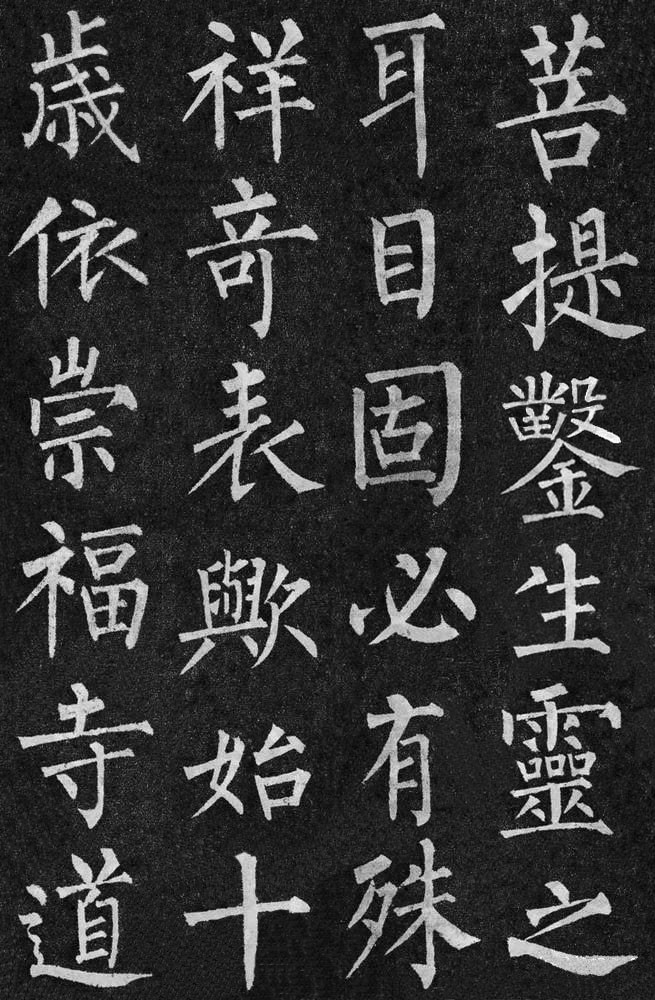 菩提鑿生靈之
耳目固必有殊
祥奇表歟始十
歳依崇福寺道